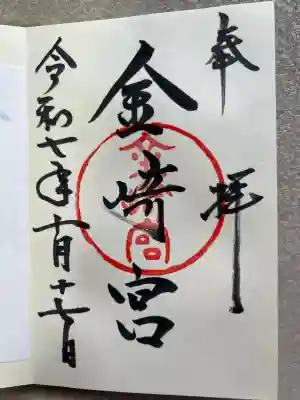 奉拝
金崎宮
令和七年十月十七日
金崎宮